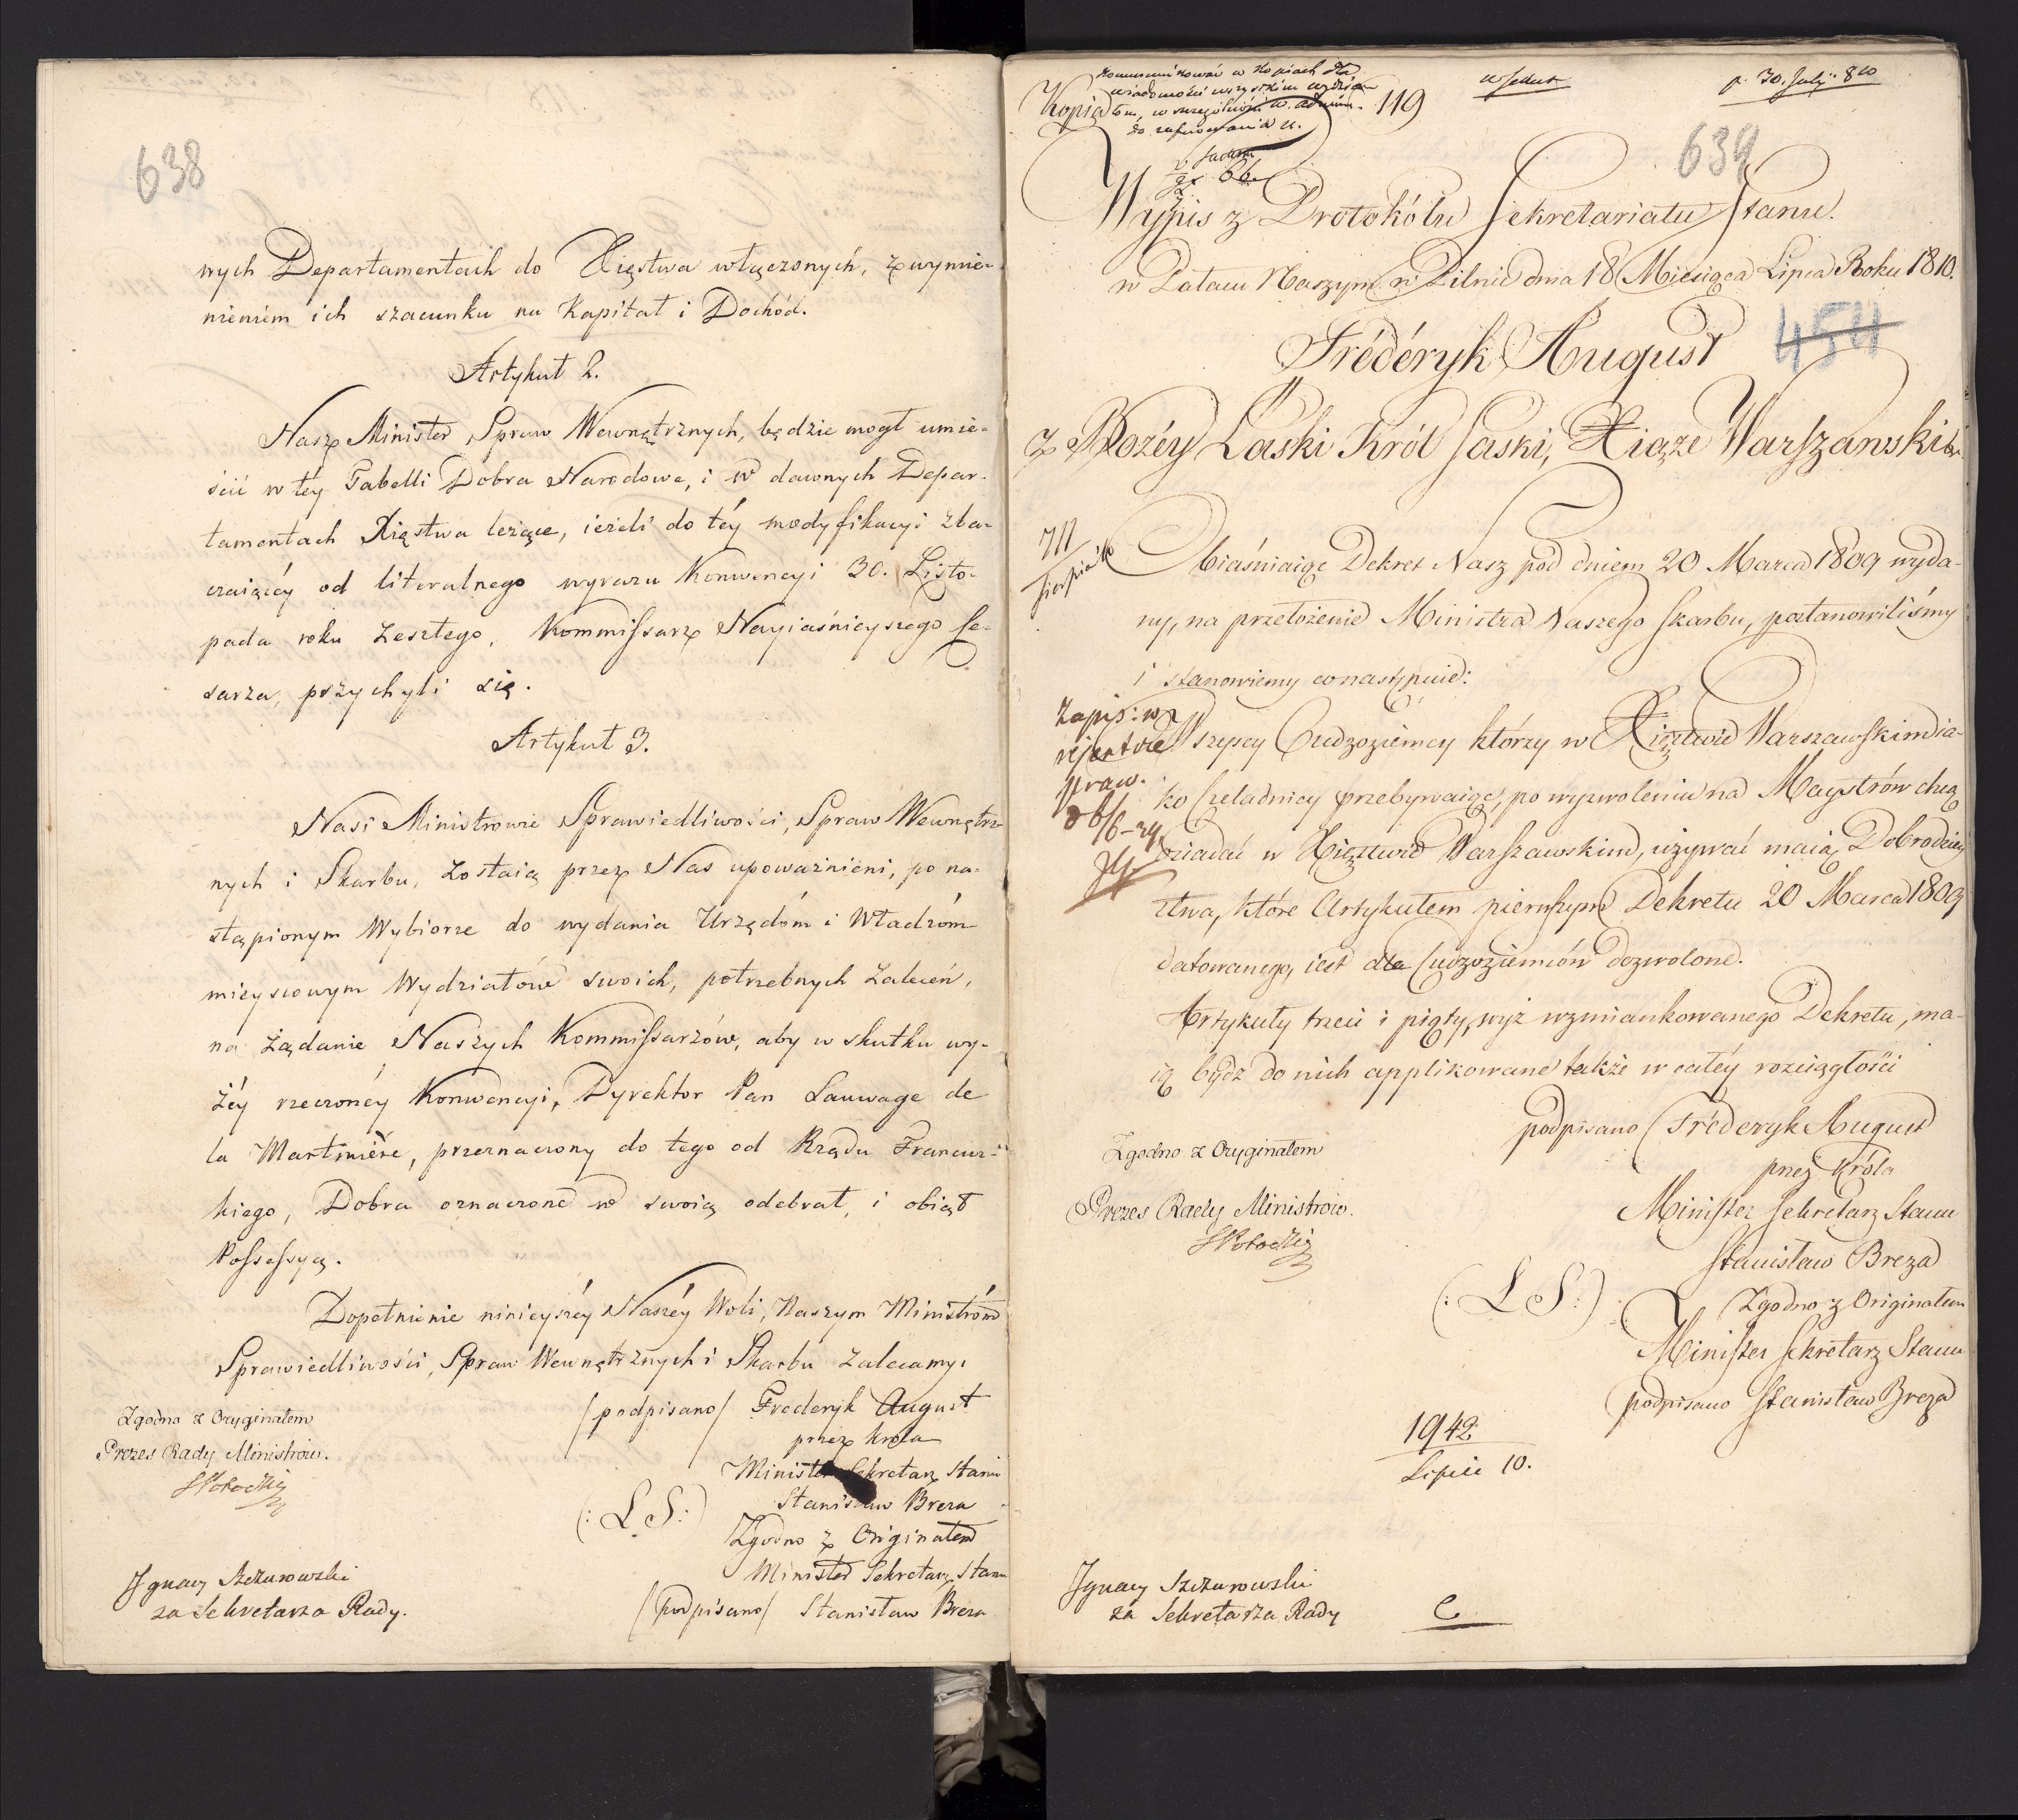 638
wych Departamentach do Xięstwa włączonych, z wymie-
nieniem ich szacunku na Kapitał i Dochód.
Artykuł 2.
Nasz Minister Spraw Wewnętrznych, będzie mogł umie-
ścić w téy Tabelli Dobra Narodowe, i w dawnych Depar-
tamentach Xięstwa leżące, ieżeli do téy modyfikacyi zba-
czaiącéy od literalnego wyrazu Konwencyi 30. Listo-
pada roku zeszłego, Kommissarz Nayiaśnieyszego Ce-
sarza, przychyli się.
Artykuł 3.
Nasi Ministrowie Sprawiedliwości, Spraw Wewnętrz-
nych i Skarbu, zostaią przez Nas upoważnieni, po na-
stąpionym Wybiorze do wydania Urzędóm i Władzóm
mieyscowym Wydziałów swoich, potrzebnych zaleceń,
na żądanie Naszych Kommissarzów, aby w skutku wy-
żéy rzeczonéy Konwencyi, Dyrektor Pan Sauvage de
la Martiniére, przeznaczony do tego od Rządu Francuz-
kiego, Dobra oznaczone w swoią odebrał, i obiął
Possessyą.
Dopełnienie ninieyszéy Naszéy Woli, Naszym Ministróm
Sprawiedliwości, Spraw Wewnętrznych i Skarbu zalecamy.
/podpisano/ Frederyk August
przez Króla
Minister Sekretarz Stanu
Stanisław Breza
(: L S :)
Zgodno z Originałem
Minister Sekretarz Stanu
/podpisano/ Stanisław Breza
Zgodno z Oryginałem
Prezes Rady Ministrów.
SPotocki
Ignacy Szczurowski
za Sekretarza Rady.
Kommunikować w kopiach dla
wiadomości wszystkim wydzia-
łom, w szczególności w. admin.
do zachowania
Kopia
119
p. 30. July 810
639
Wypis z Protokółu Sekretariatu Stanu.
w Pałacu Naszym w Pilnic dnia 18 Miesiąca Lipca Roku 1810.
Fréderyk August
454
z Bożéy Łaski Król Saski, Xiąże Warszawski &c.
Obiaśniaiąc Dekret Nasz pod dniem 20 Marca 1809 wyda-
ny, na przełożenie Ministra Naszego Skarbu, postanowiliśmy
i stanowiemy co następuie:
Wszyscy Cudzoziemcy którzy w Xięztwie Warszawskim ia-
ko Czeladnicy przebywaiąc, po wyzwoleniu na Maystrów chcą
osiadać w Xięztwie Warszawskim, używać maią Dobrodziey-
ztwa, które Artykułem pierwszym Dekretu 20 Marca 1809
datowanego, iest dla Cudzoziemców dozwolone.
Artykuły trzeci i piąty, wyż wzmiankowanego Dekretu, ma-
ią bydz do nich applikowane także w całéy rozciągłości
711
Sierpień
Zapis: w
rejestrze
praw.
podpisano Fréderyk August
przez Króla
Minister Sekretarz Stanu
Stanisław Breza
(: L S :)
Zgodno z Originałem
Minister Sekretarz Stanu
podpisano Stanisław Breza
Zgodno z Oryginałem
Prezes Rady Ministrów.
SPotocki
1942
Lipiec 10.
Ignacy Szczurowski
za Sekretarza Rady